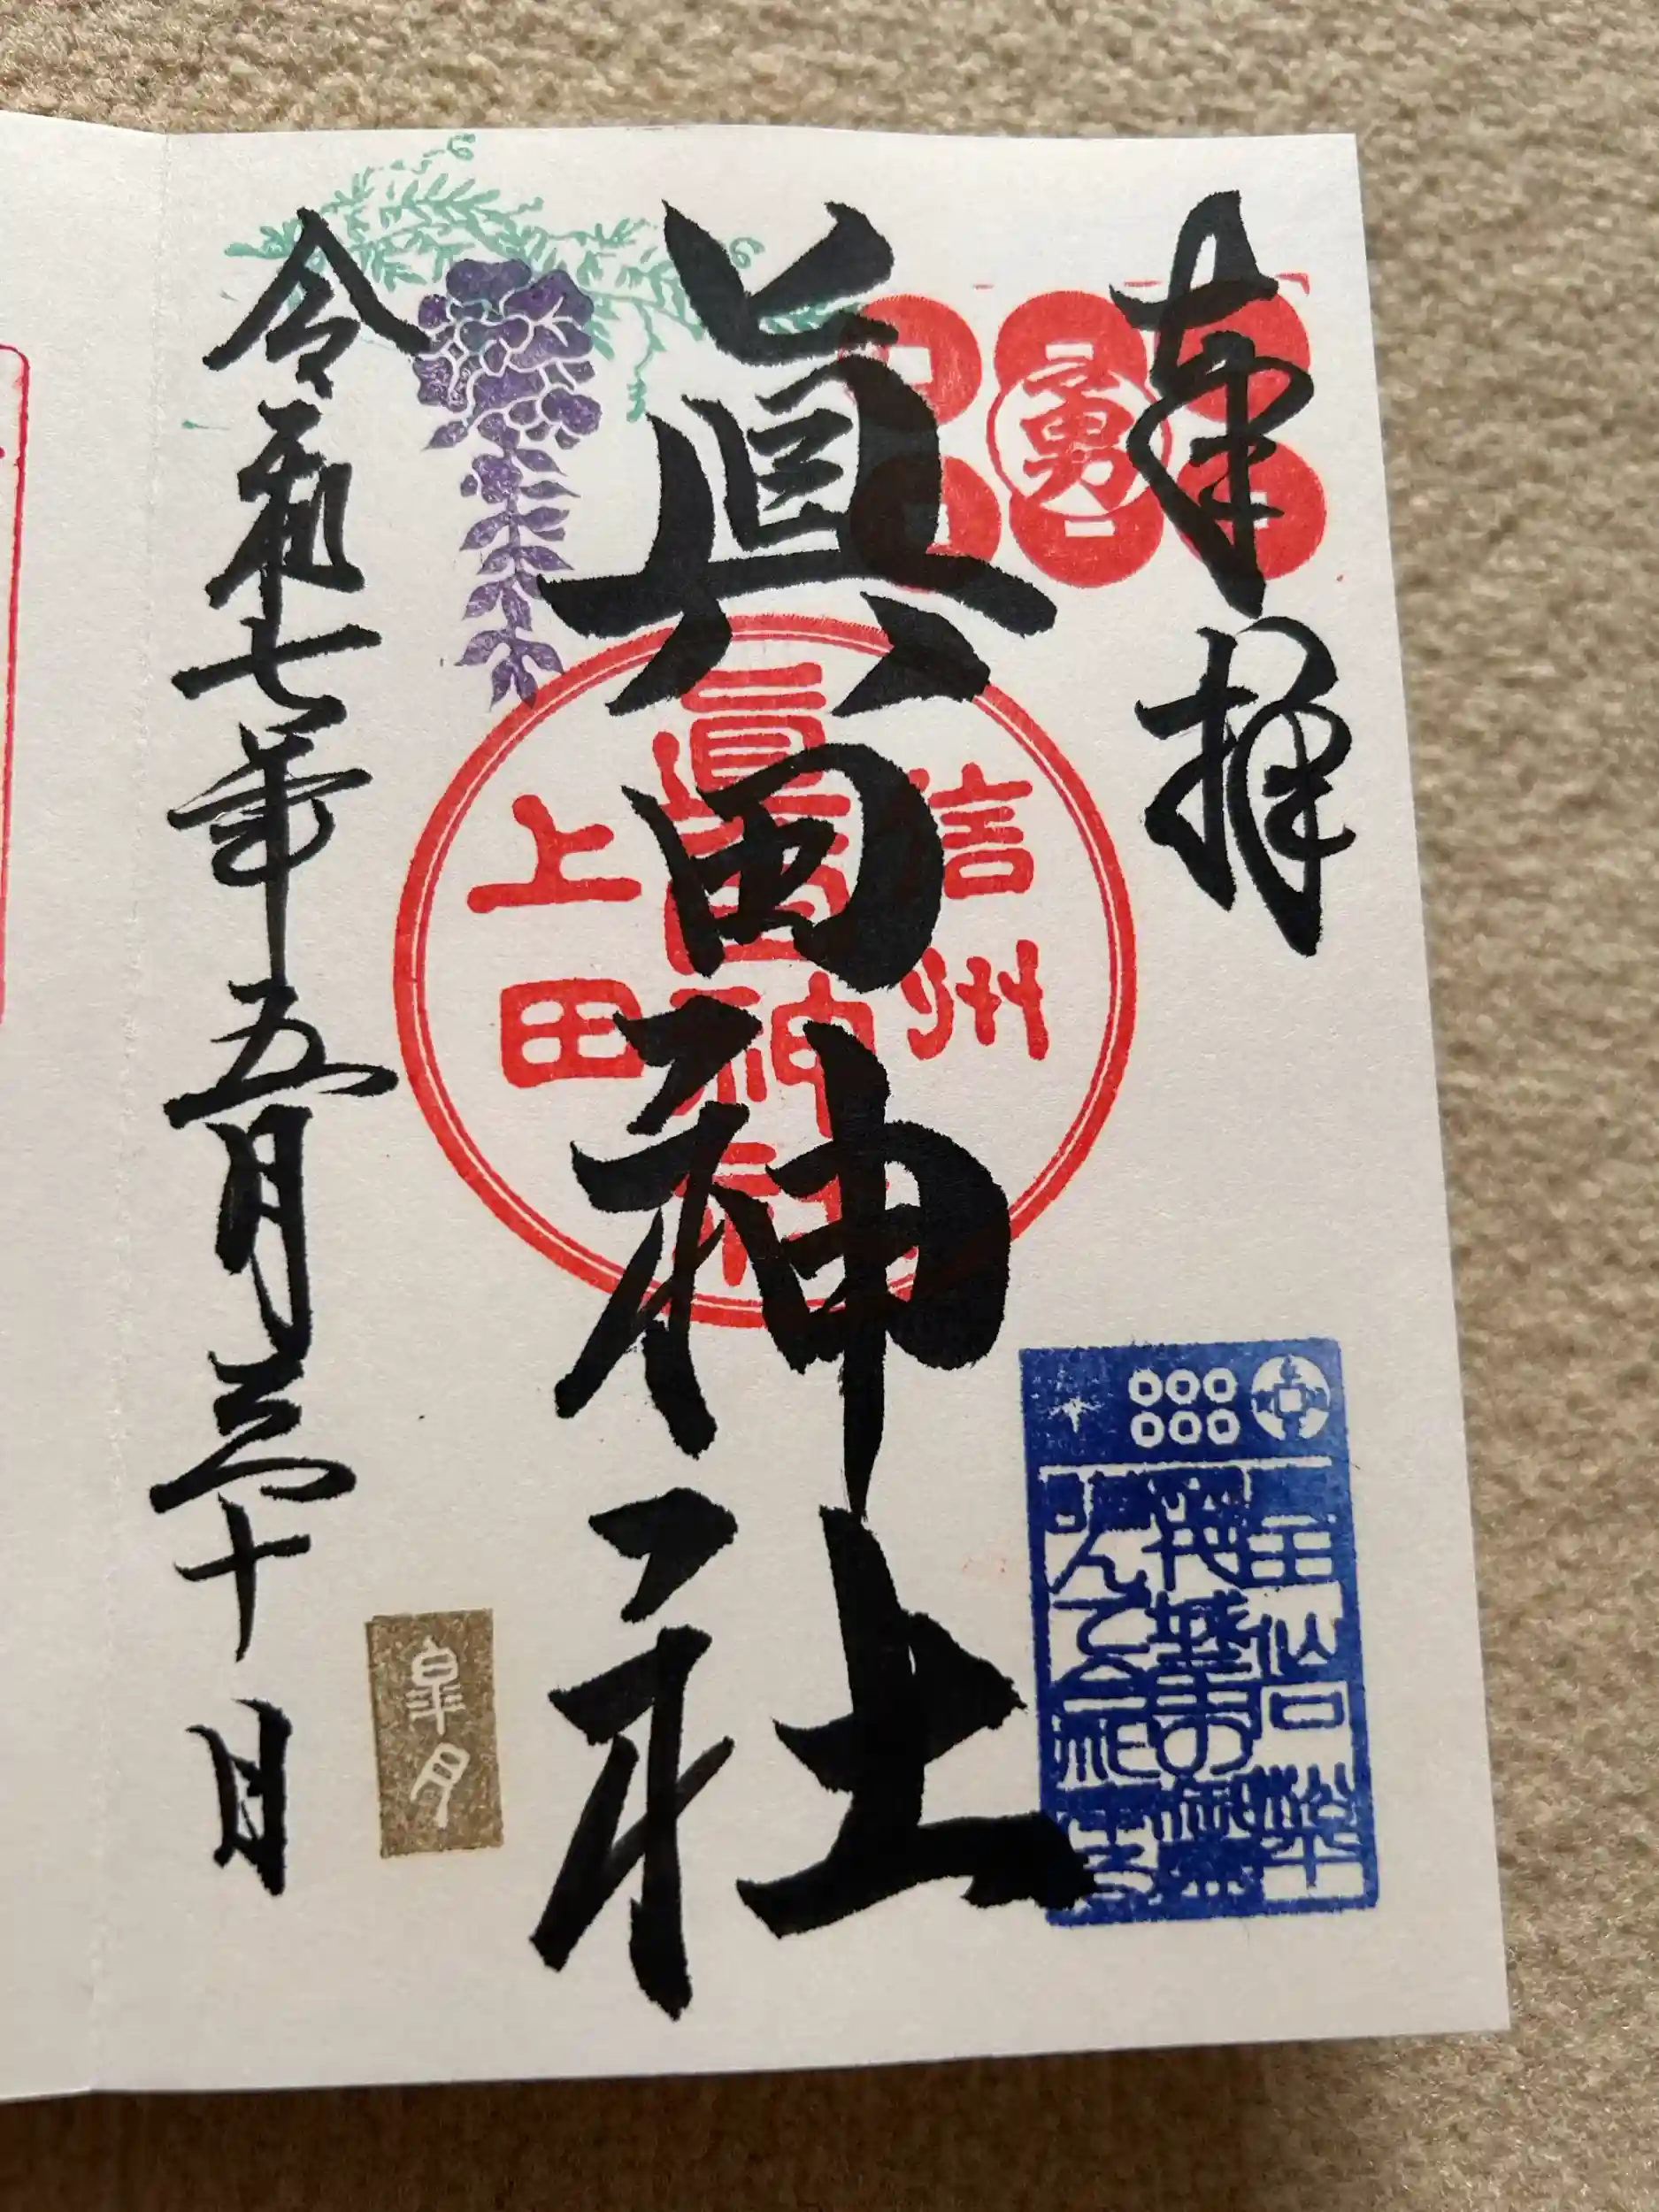 奉拝
勇
眞田神社
信州
眞田神社
上田
皐月
令和七年五月三十日